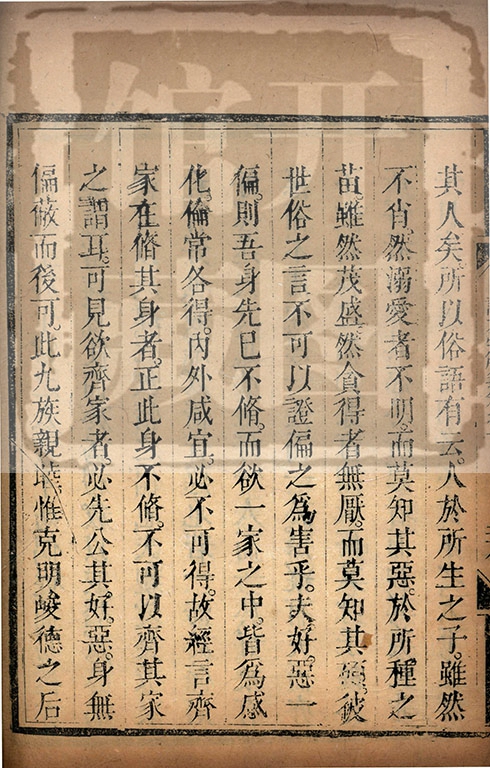 其人矣所以俗語有云人於所生之子雖然
不肖然溺愛者不明而莫知其惡於所種之
苗雖然茂盛然貪得者無厭而莫知其碩彼
世俗之言不可以證偏之為害乎夫好惡一
偏則吾身先已不脩而欲一家之中皆為感
化倫常各得內外咸宜必不可得故經言齊
家在脩其身者正此身不脩不可以齊其家
之謂耳可見欲齊家者必先公其好惡身無
偏蔽而後可此九族親睦惟克明峻德之后